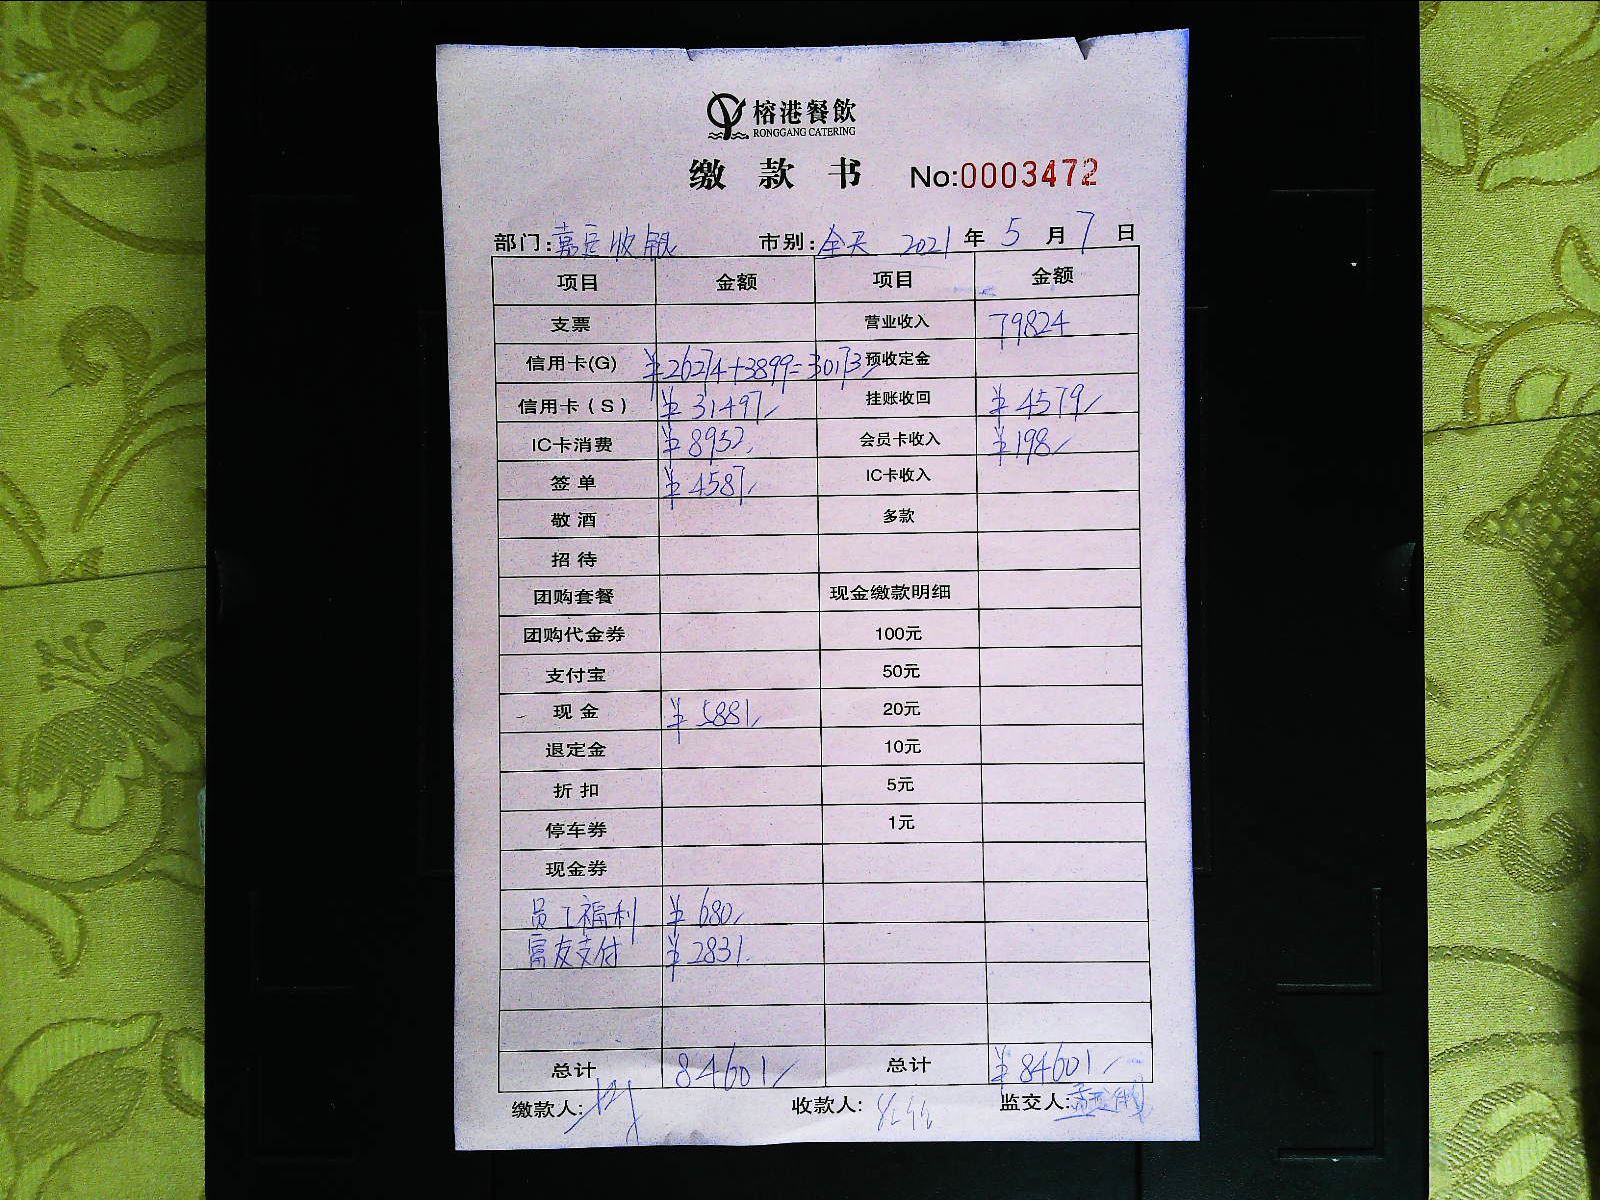 榕港餐飲
RONGGANG CATERING
缴款书 No:0003472
部门:嘉定收银 市别:全天 2021年5月7日
项目 金额 项目 金额
支票 营业收入 79824
信用卡(G) ¥26274+3899=30173 预收定金
信用卡(S) ¥31497 挂账收回 ¥4579
IC卡消费 ¥8952 会员卡收入 ¥198
签单 ¥4587 IC卡收入
敬酒 多款
招待
团购套餐 现金缴款明细
团购代金券 100元
支付宝 50元
现金 ¥5881 20元
退定金 10元
折扣 5元
停车券 1元
现金券
员工福利 ¥680
富友支付 ¥2831
总计 84601 总计 ¥84601
缴款人: 收款人: 监交人: